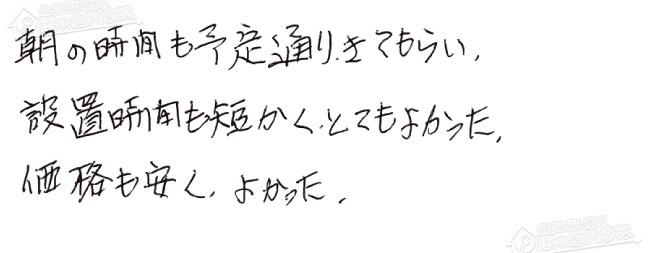 朝の時間も予定通りきてもらい、
設置時間も短かく、とてもよかった。
価格も安く、よかった。